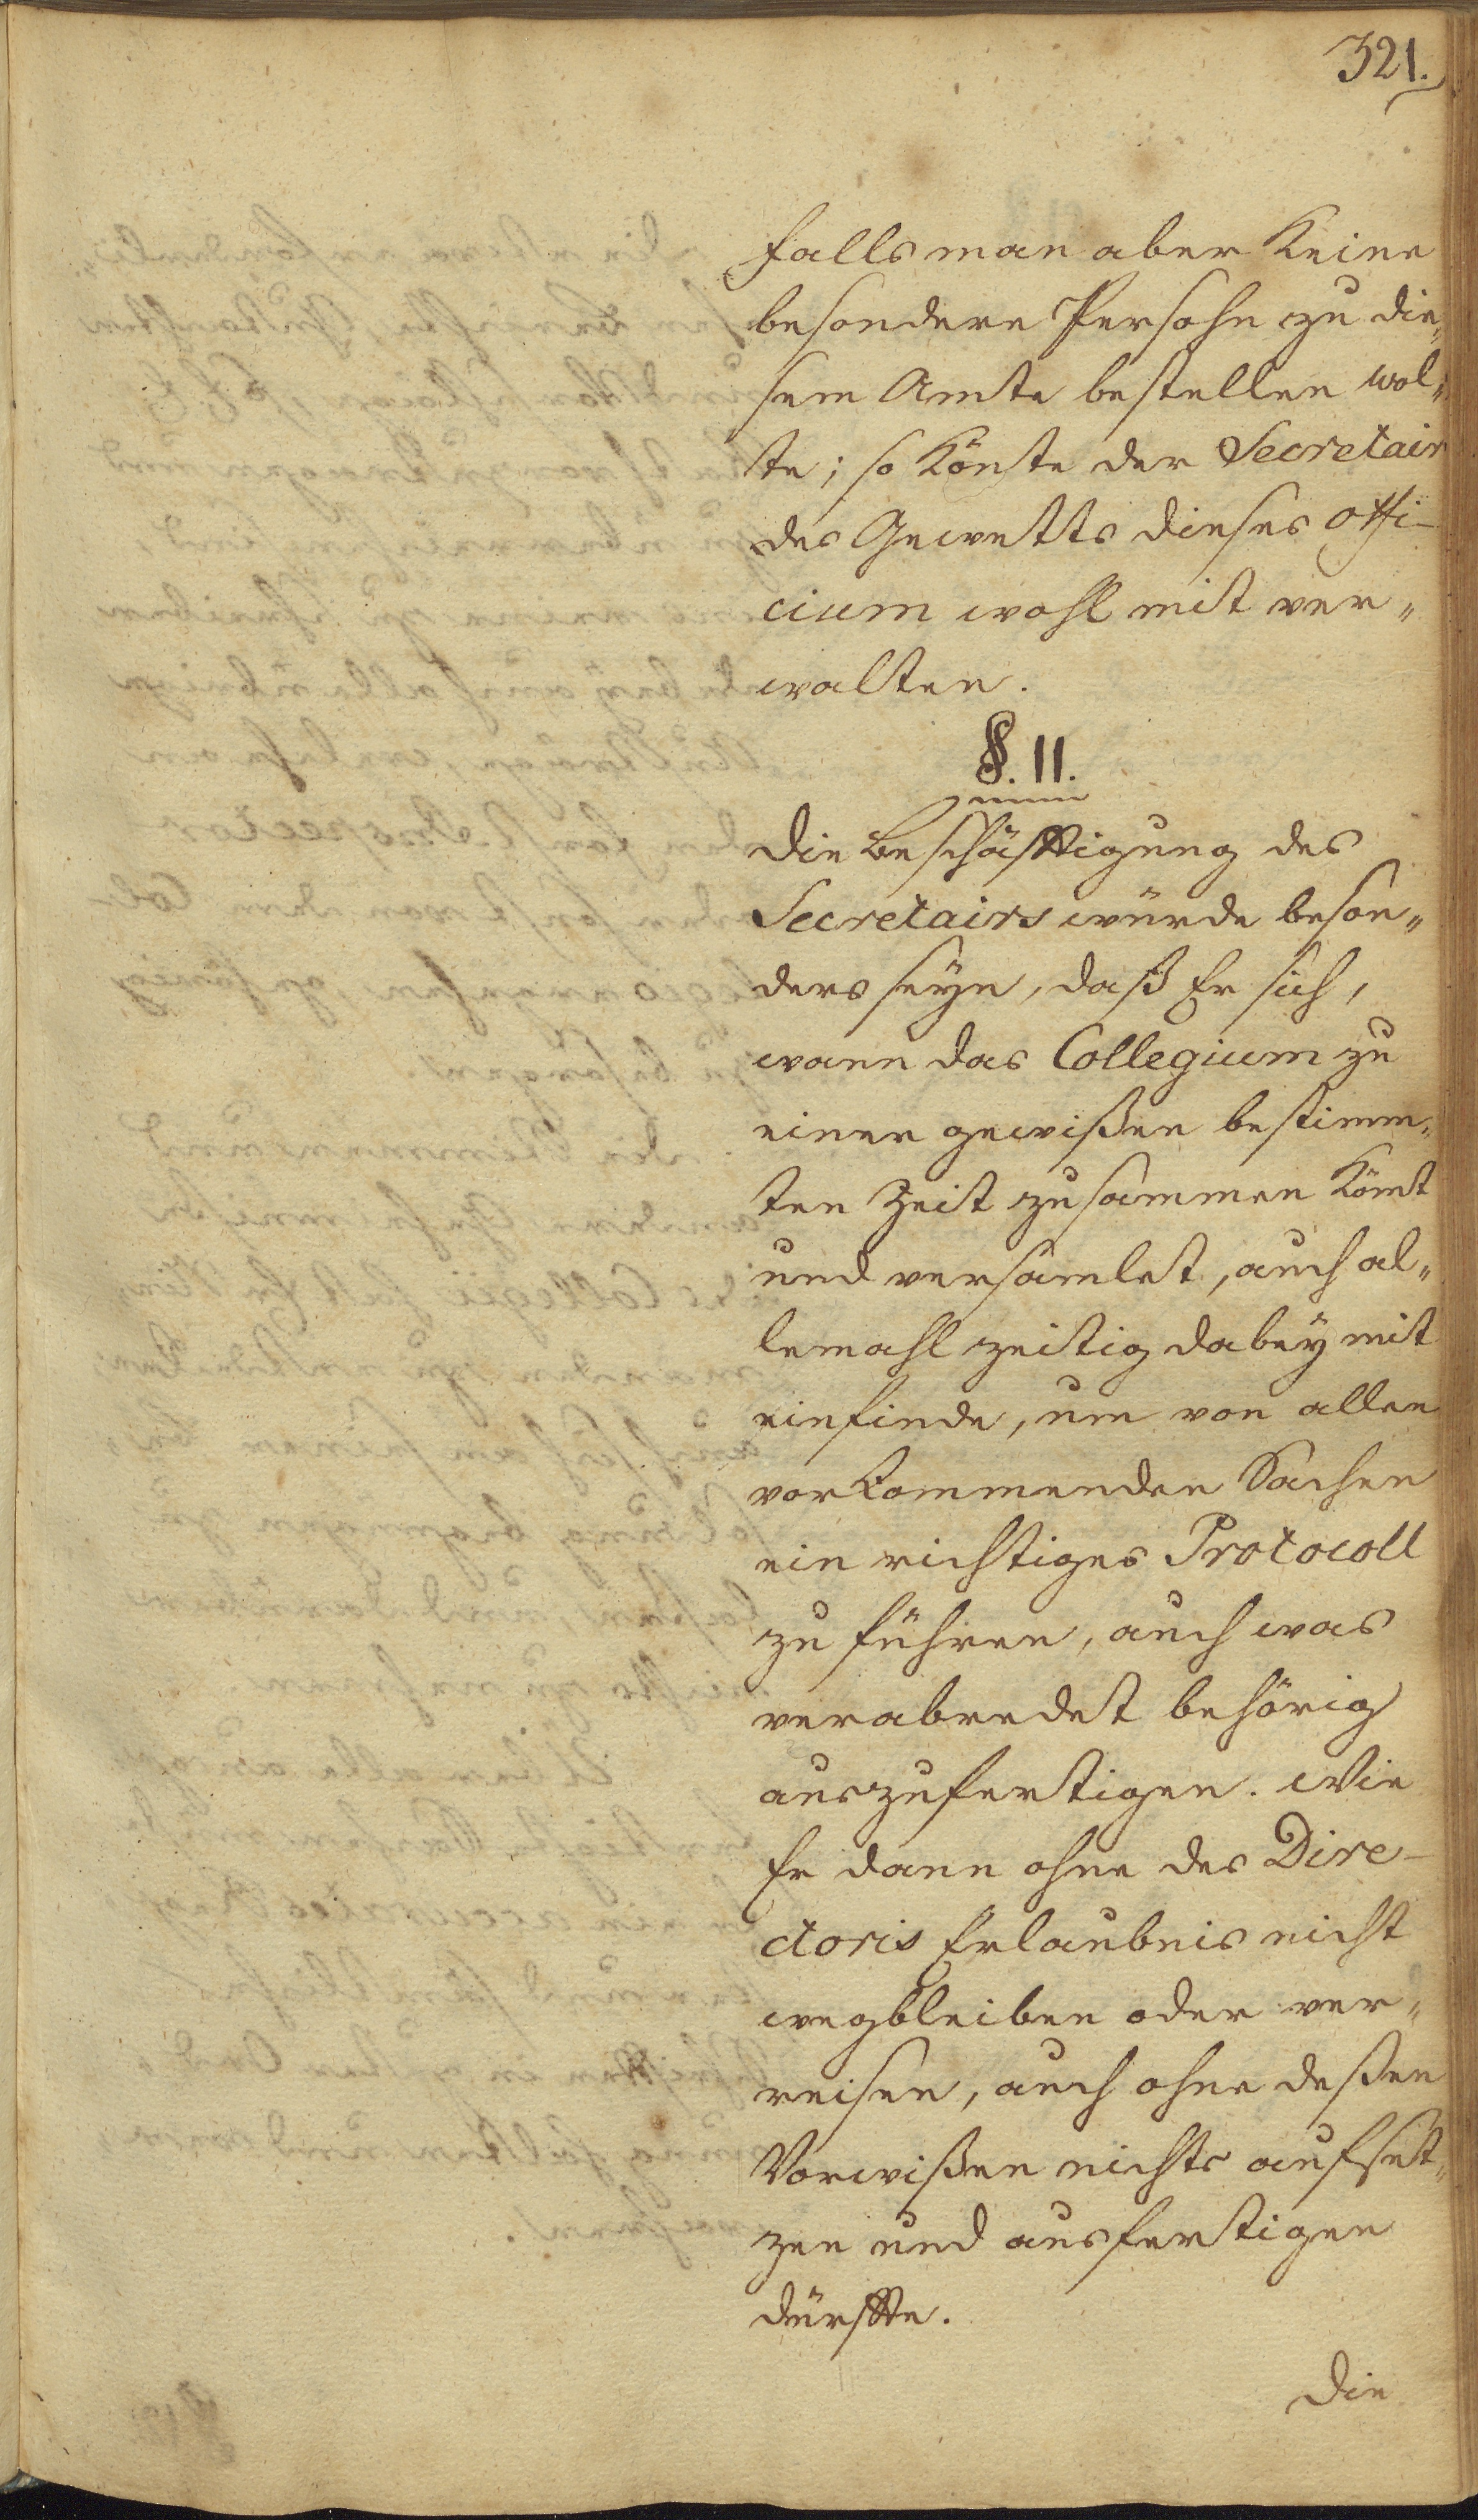 321.
falls man aber keine
besondere Persohn zu die„
sem Amte bestellen wol„
te; so könte der Secretair
des Gewetts dieses offi-
cium wohl mit ver„
walten.
§. 11.
die Beschäfftigung des
Secretairs würde beson„
ders seyn, daß Er sich,
wann das Collegium zu
einer gewißen bestimm„
ten Zeit zusammen kömt
und versamlet, auch al„
lemahl zeitig dabey mit
einfinde, um von allen
vorkommenden Sachen
ein richtiges Protocoll
zu führen, auch was
verabredet behörig
auszufertigen. Wie
Er dann ohne des Dire-
ctoris Erlaubnis nicht
wegbleiben oder ver„
reisen, auch ohne deßen
Vorwißen nichts aufset„
zen und ausfertigen
dürffte.
Die